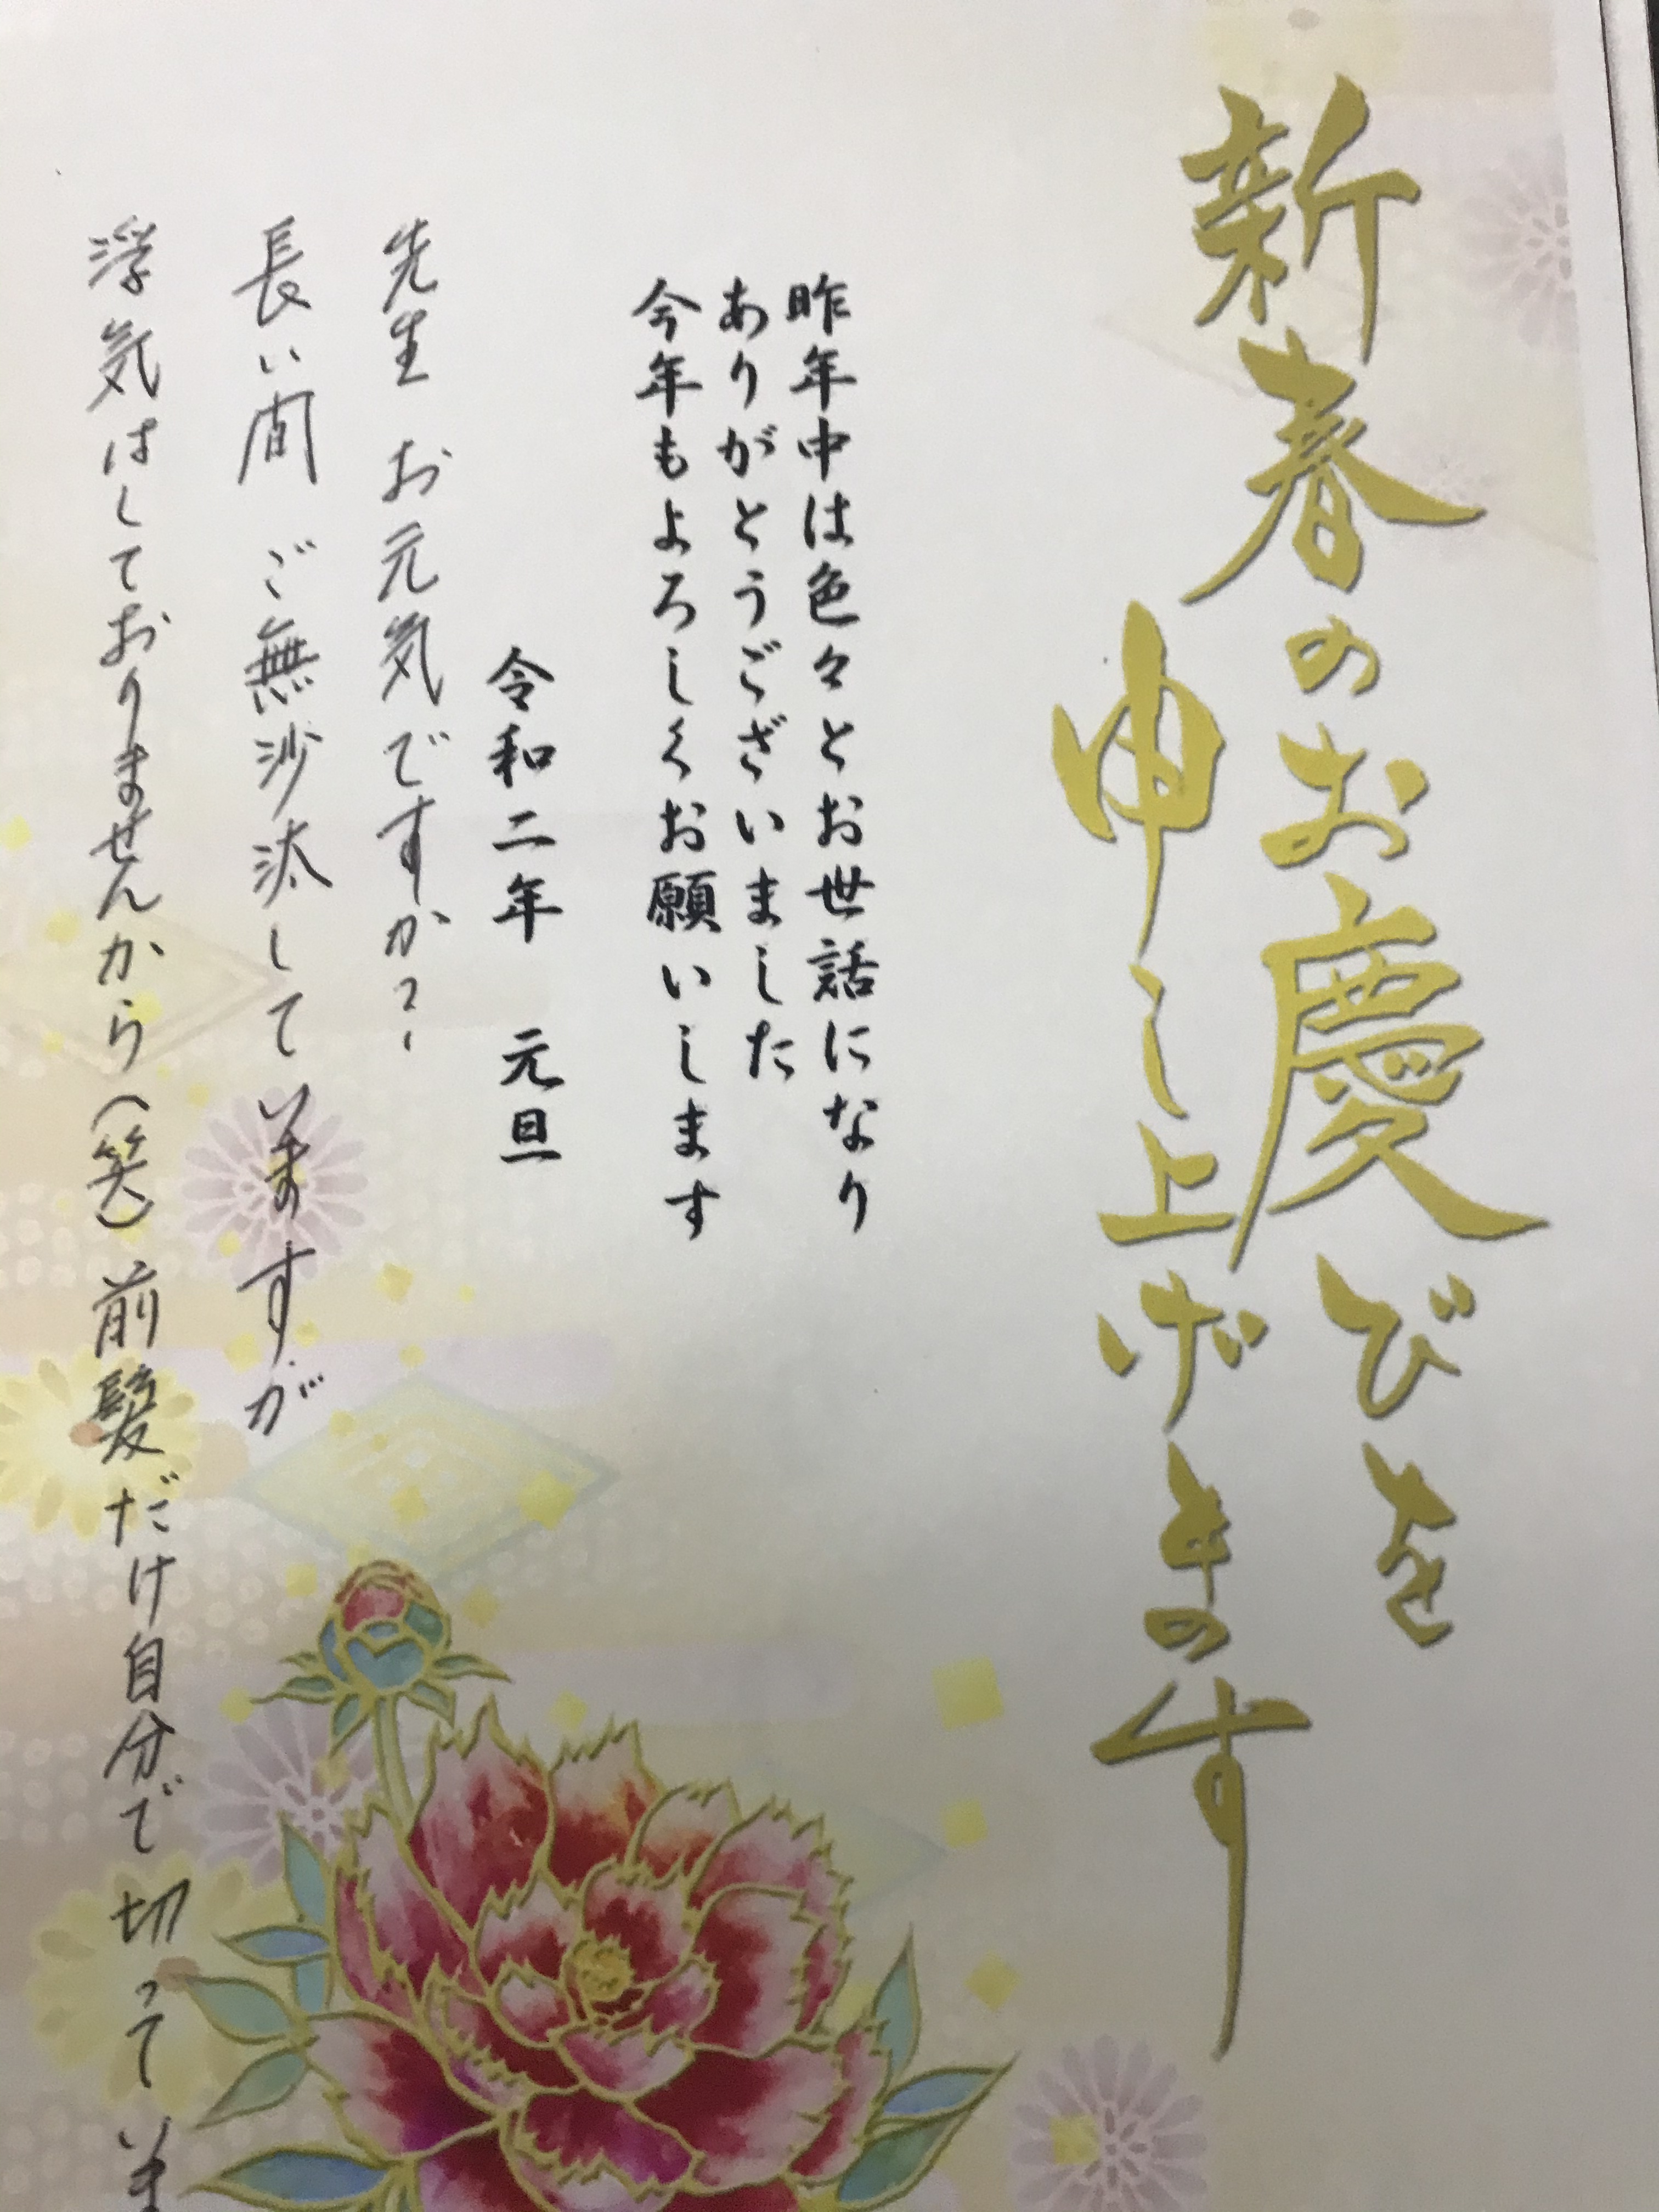 新春のお慶びを
申し上げます
昨年中は色々とお世話になり
ありがとうございました
今年もよろしくお願いします
令和二年 元旦
先生 お元気ですか?
長い間 ご無沙汰して いますが
浮気はしておりませんから(笑)前髪だけ自分で切っていま